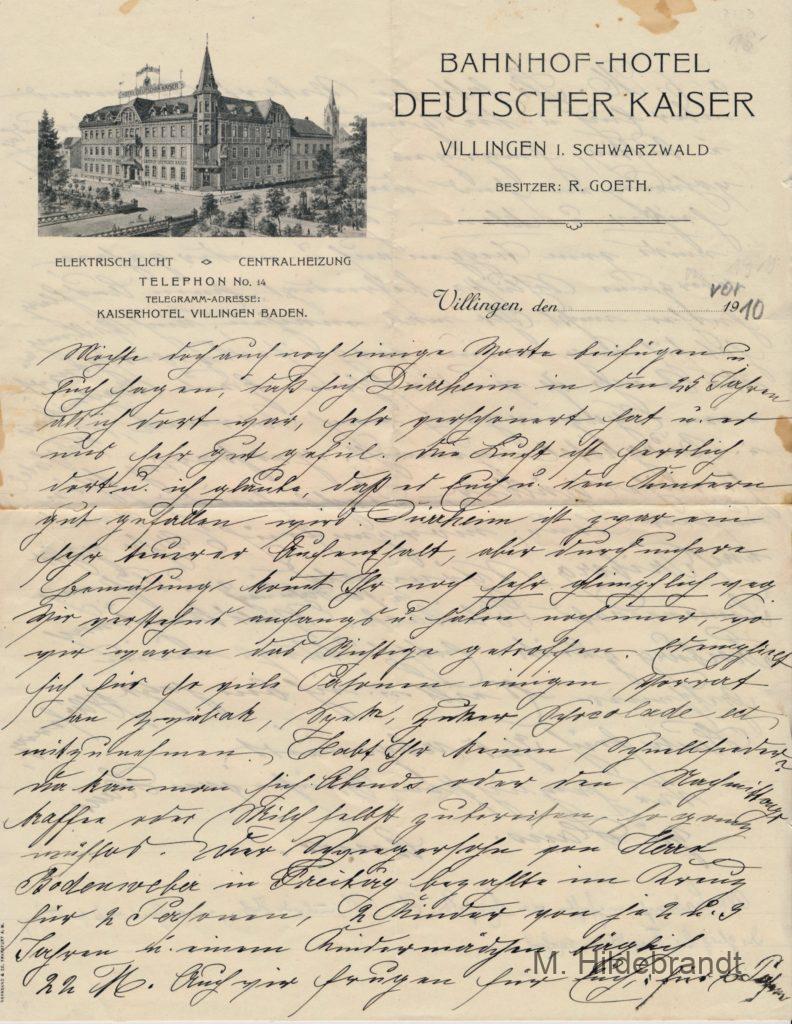 BAHNHOF-HOTEL
DEUTSCHER KAISER
VILLINGEN I. SCHWARZWALD
BESITZER: R. GOETH.
HOTEL DEUTSCHER KAISER
ELEKTRISCH LICHT CENTRALHEIZUNG
TELEPHON No. 14
TELEGRAMM-ADRESSE:
KAISERHOTEL VILLINGEN BADEN.
Villingen, den 19
vor 10
Möchte doch auch noch einige Worte beifügen u.
Euch sagen, daß sich Dürrheim in den 25 Jahren
als ich dort war, sehr verschönert hat u. es
uns sehr gut gefiel. Die Luft ist herrlich
dort u. ich glaube, daß es Euch u. den Kindern
gut gefallen wird. Dürrheim ist zwar ein
sehr teurer Aufenthalt, aber durch unsere
Bemühung komt Ihr noch sehr glimpflich weg
Wir anfangs u. haben noch
wir waren das Richtige getroffen. Es empfielt
sich für so viele Personen einigen Vorrat
an Zwiback, Speck, Zuker Schocolade ect
mitzunehmen. Habt Ihr keinen Schnellsieder?
da kan man sich Abends oder den Nachmittags
kaffee oder Milch selbst zubereiten, so ganz
mühlos. Der Schwiegersohn von Herrn
Bodenweber in Freitag bezahlte im Kreuz
für 2 Personen, 2 Kinder von je 2 u. 3
Jahren u. einem Kindermädchen täglich
22 M. Auch wir frugen für Euch, für 6
M. Hildebrandt